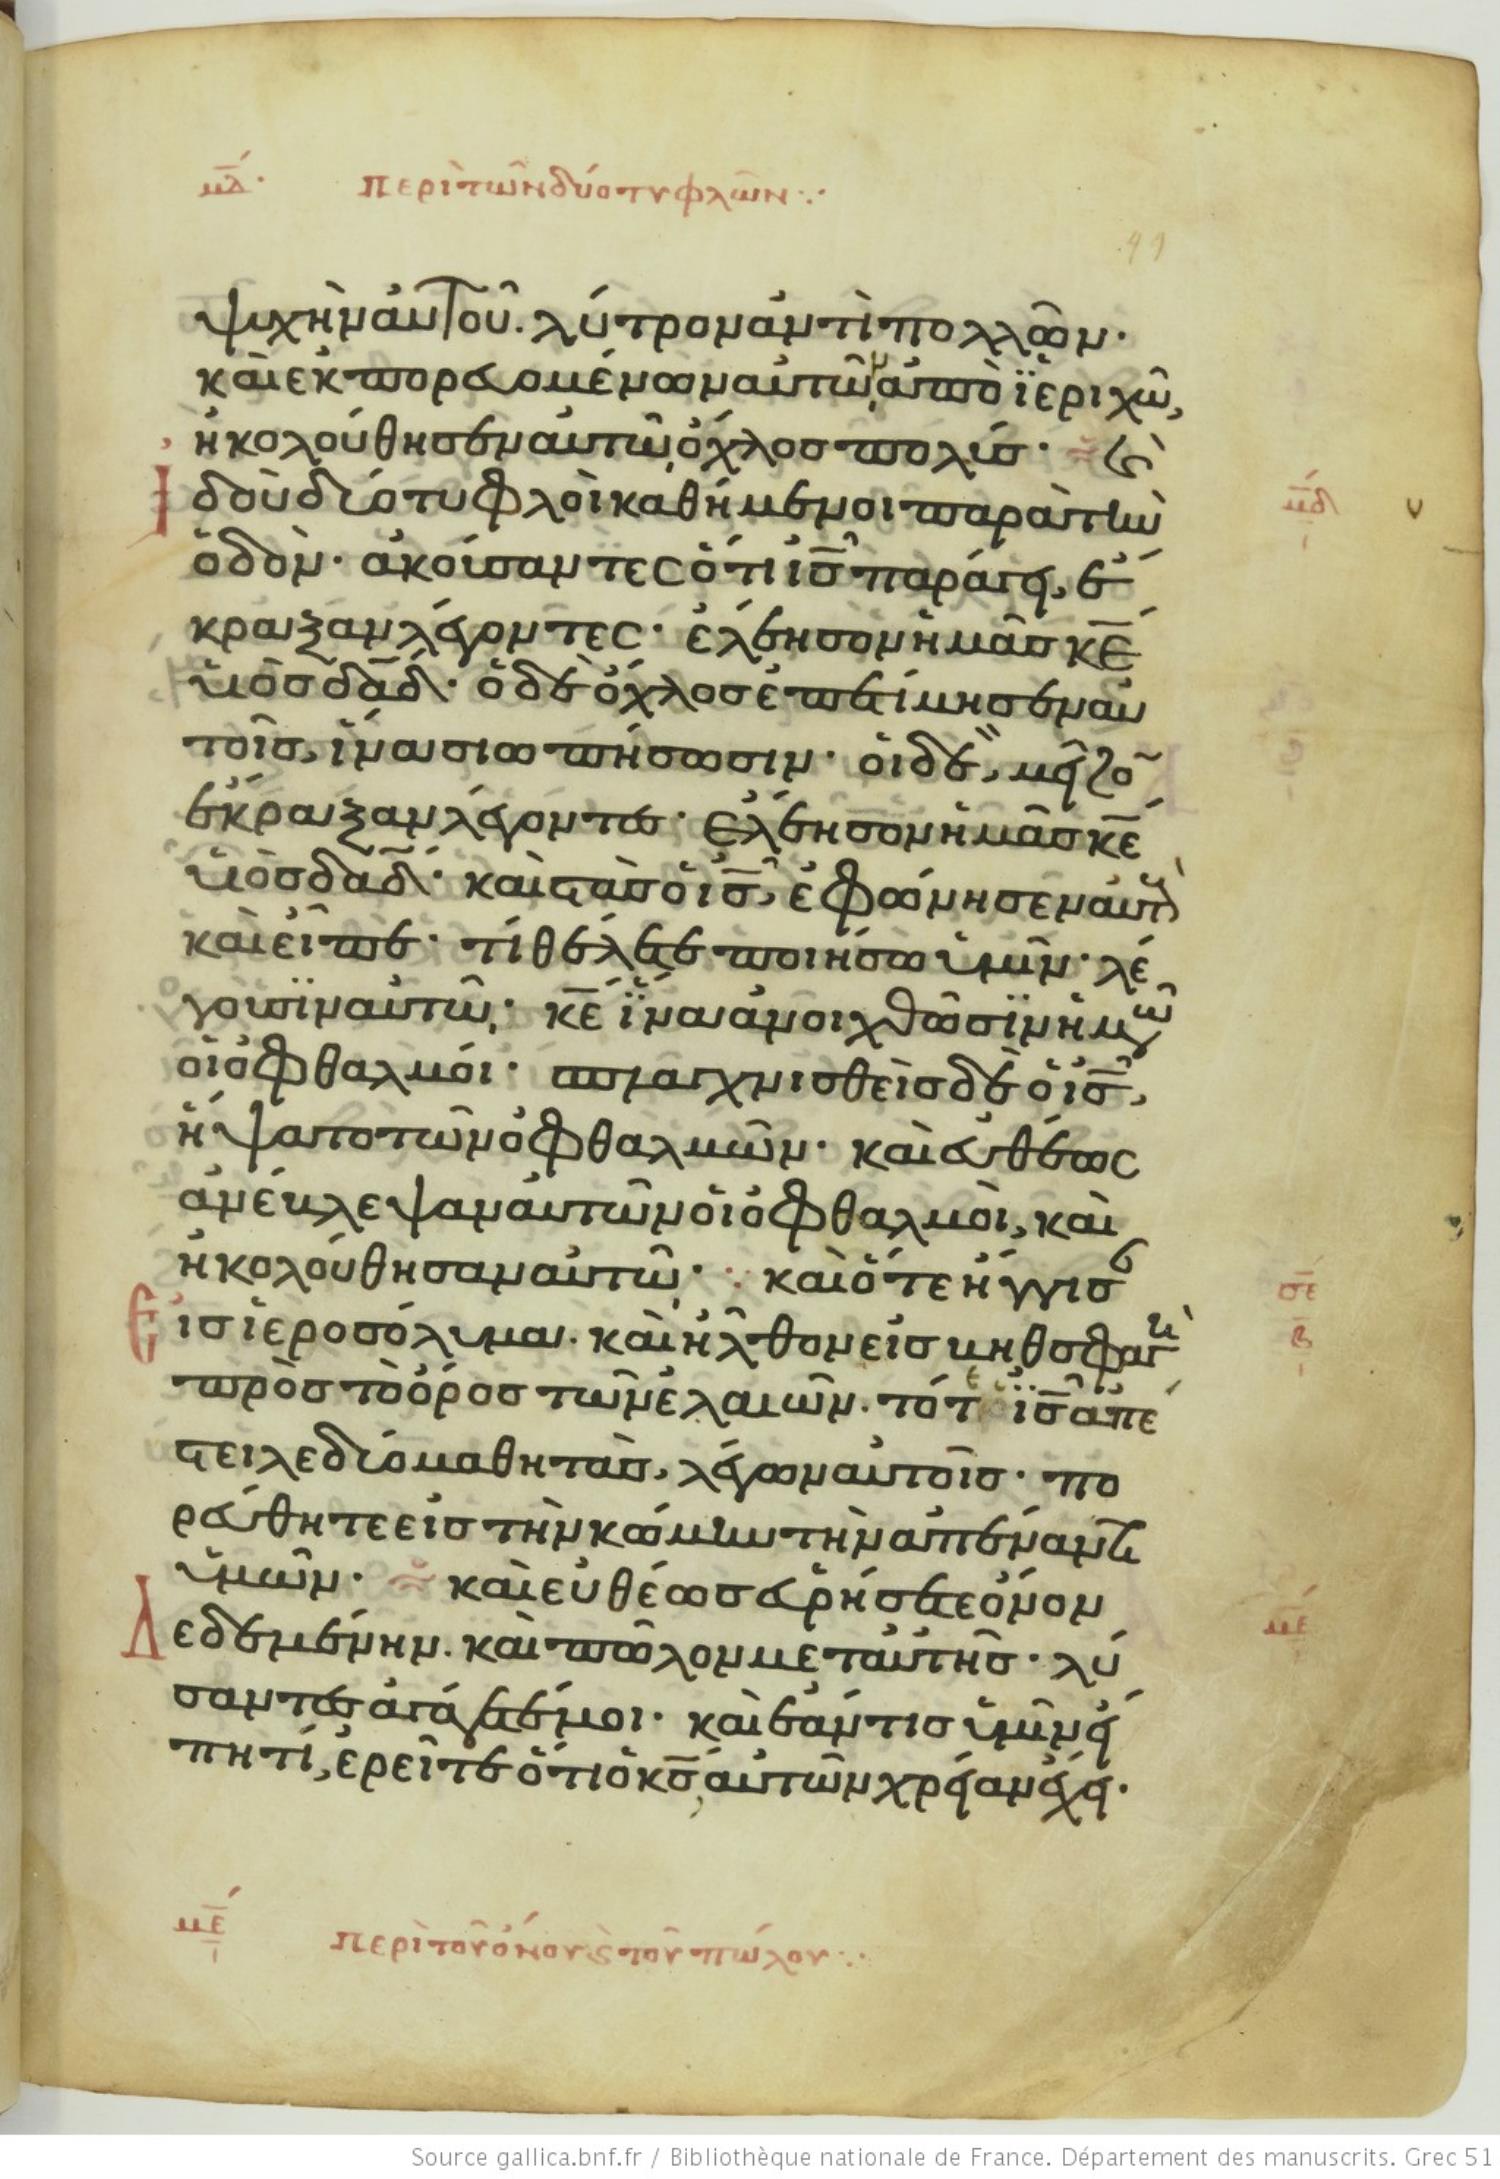 μδ· περὶ τῶν δύο τυφλῶν:·
49
ψυχὴν αὐτοῦ. λύτρον ἀντὶ πολλῶν·
καὶ ἐκπορευομένων αὐτῶν ἀπὸ ϊεριχῶ,
ἠκολούθησεν αὐτῶ ὄχλος πολύς· ϗ
ἰδοὺ δύο τυφλοὶ καθήμενοι παρὰ τὴν
μδ
ὁδὸν· ἀκούσαντες ὅτι ις̅ παράγει, ἔ
κραξαν λέγοντες· ἐλέησον ἡμᾶς κε̅
υἱὸς δαδ̅· ὁ δὲ ὄχλος ἐπετίμησεν αὐ
τοῖς, ἵνα σιωπήσωσιν· οἱ δὲ, μεῖζο
ἔκραξαν λέγοντες· ἐλέησον ἡμᾶς κε̅
υἱὸς δαδ̅· καὶ στὰς ὁ ις̅, ἐφώνησεν αὐτοὺς
καὶ εἶπε· τί θέλετε ποιήσω ὑμῖν· λέ
γουσϊν αὐτῶ· κε̅ ἵνα ἀνοιχθῶσϊν ἡμῶν
οἱ ὀφθαλμόι· σπλαγχνισθεὶς δὲ ὁ ις̅,
ἥψατο τῶν ὀφθαλμῶν· καὶ εὐθέως
ἀνέβλεψαν αὐτῶν οἱ ὀφθαλμοὶ, καὶ
ἠκολούθησαν αὐτῶ· : καὶ ὅτε ἤγγισε
εἰς ἱεροσόλυμα. καὶ ἦλθον εἰς βηθσφαγὴ
σε
β
πρὸς τὸ ὄρος τῶν ἐλαιῶν. τότε ϊς̅ ἀπέ
στειλε δύο μαθητὰς, λέγων αὐτοῖς· πο
ρεύθητε εἰς τὴν κώμην τὴν ἀπέναντι
ὑμῶν· καὶ εὐθέως εὑρήσετε ὄνον
δεδεμένην. καὶ πῶλον μετ αὐτῆς· λύ
με
σαντες ἀγάγετέ μοι· καὶ ἐάν τις ὑμῖν εἴ
πη τί, ἐρεῖτε ὅτι ὁ κς̅ αὐτῶν χρείαν ἔχει·
με περὶ τοῦ ὄνου ϗ τοῦ πώλου:·
Source gallica.bnf.fr / Bibliothèque nationale de France. Département des manuscrits. Grec 51